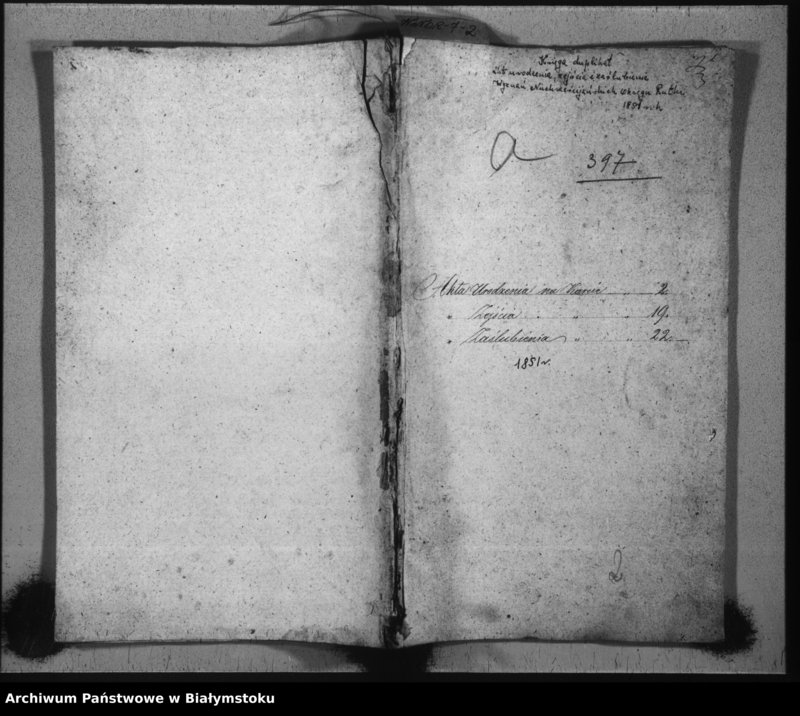 Księga duplikat
akt urodzenia, zejścia i zaślubienia
Wyznań Niechrześcijańskich okręgu Rutki
1851 rok
a
397
Akta Urodzenia na Karcie " 2
" Zejścia " " 19.
" Zaślubienia " " 22.
1851 r.
2
Archiwum Państwowe w Białymstoku